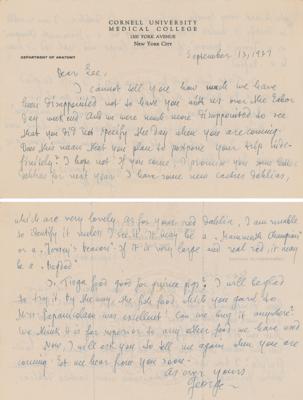 CORNELL UNIVERSITY
MEDICAL COLLEGE
1300 YORK AVENUE
NEW YORK CITY
DEPARTMENT OF ANATOMY
September 13, 1937
Dear Lee:
I cannot tell you how much we have
been disappointed not to have you with us over the Labor
Day week end. And we were much more disappointed to see
that you did not specify the day when you are coming.
Does this mean that you plan to postpone your trip inde-
finitely? I hope not. If you come I promise you some
dahlias for next year. I have some new cactus dahlias,
which are very lovely. As for your red dahlia, I am unable
to identify it unless I see it. It may be a
or a "Jersey's Beacon". If it is very large and real red, it may
be a
Is Tioga food good for guinea pigs? I will be glad
to try it. By the way, the fish food which you gave to
Mrs. Papanicolaou was excellent. Can we buy it anywhere?
We think it is far superior to any other food we have used
Now, I will ask you to tell me again when you are
coming. Let me hear from you soon.
As ever yours
George